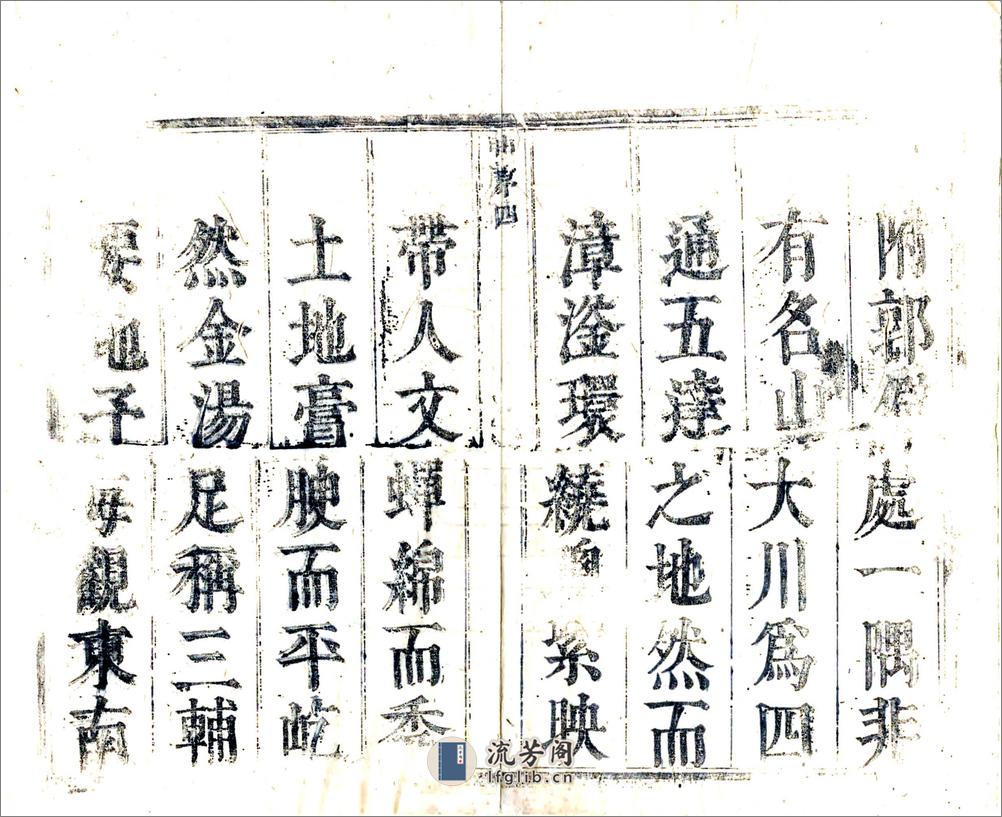 附郭僻處一隅非
有名山大川爲四
通五達之地然而
漳滏環繞映
四
帶人文蟬綿而秀
土地膏腴而平屹
然金湯足稱三輔
要地予每觀東南
流芳阁
lfglib.cn